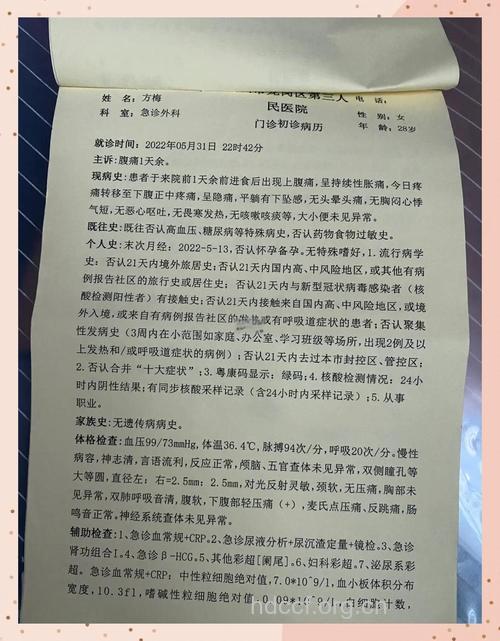 区第三人
民医院
门诊初诊病历
姓 名：方梅
科 室：急诊外科
电 话：
性 别：女
年 龄：28岁
就诊时间：2022年05月31日 22时42分
主诉：腹痛1天余。
现病史：患者于来院前1天余前进食后出现上腹痛，呈持续性胀痛，今日疼
痛转移至下腹正中疼痛，呈隐痛，平躺有下坠感，无头晕头痛，无胸闷心悸
气短，无恶心呕吐，无畏寒发热，无咳嗽咳痰等，大小便未见异常。
既往史：既往否认高血压、糖尿病等特殊病史，否认药物食物过敏史。
个人史：末次月经：2022-5-13，否认怀孕备孕。无特殊嗜好，1.流行病学
史：否认21天内境外旅居史；否认21天内国内高、中风险地区，或其他有病
例报告社区的旅行史或居住史；否认21天内与新型冠状病毒感染者（核
酸检测阳性者）有接触史；否认21天内接触来自国内高、中风险地区，或境
外入境，或来自有病例报告社区的发热或有呼吸道症状的患者；否认聚集
性发病史（3周内在小范围如家庭、办公室、学习班级等场所，出现2例及以
上发热和/或呼吸道症状的病例）；否认21天内去过本市封控区、管控区；
2.否认合并“十大症状”；3.粤康码显示：绿码；4.核酸检测情况：24小
时内阴性结果；有同步核酸采样记录（含24小时内采样记录）；5.从事
职业。
家族史：无遗传病病史。
体格检查：血压99/73mmHg，体温36.4℃，脉搏94次/分，呼吸20次/分。慢性
病容，神志清，言语流利，反应正常，颅脑、五官查体未见异常，双侧瞳孔等
大等圆，直径左：右=2.5mm：2.5mm，对光反射灵敏，颈软，无压痛，胸部未
见异常，双肺呼吸音清，腹软，下腹部轻压痛（+），麦氏点压痛、反跳痛，肠
鸣音正常。神经系统查体未见异常。
辅助检查：1.急诊血常规+CRP。2.急诊尿液分析+尿沉渣定量+镜检。3.急诊
肾功组合I。4.急诊β-HCG。5.其他彩超[阑尾]。6.妇科彩超。7.泌尿系彩
超。急诊血常规+CRP：中性粒细胞绝对值，7.0*10^9/l，血小板体积分布
宽度，10.3fl，嗜碱性粒细胞绝对值，0.09*10^9/l，白细胞计数，